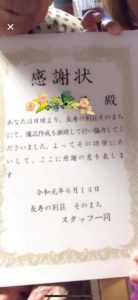 感謝状
殿
あなたは日頃より、長寿の別荘そのまち
にて、備品作成を継続して行い協力してく
ださいました。よってその功労に
たいして、ここに感謝の意を表しま
す
令和元年6月14日
長寿の別荘 そのまち
スタッフ一同